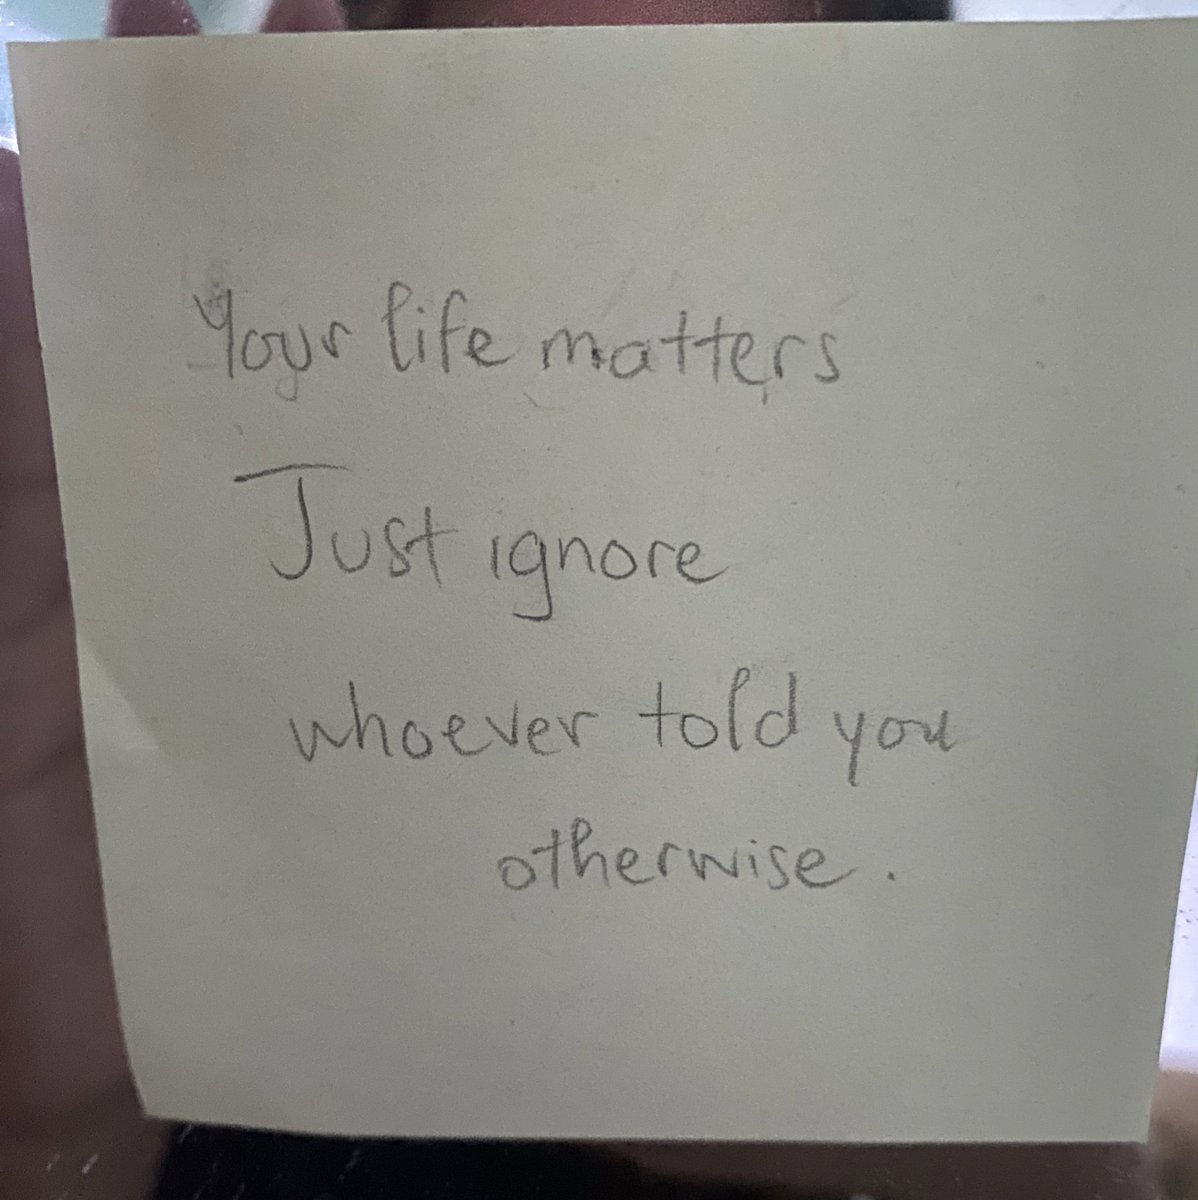 Your life matters
Just ignore
whoever told you
otherwise.